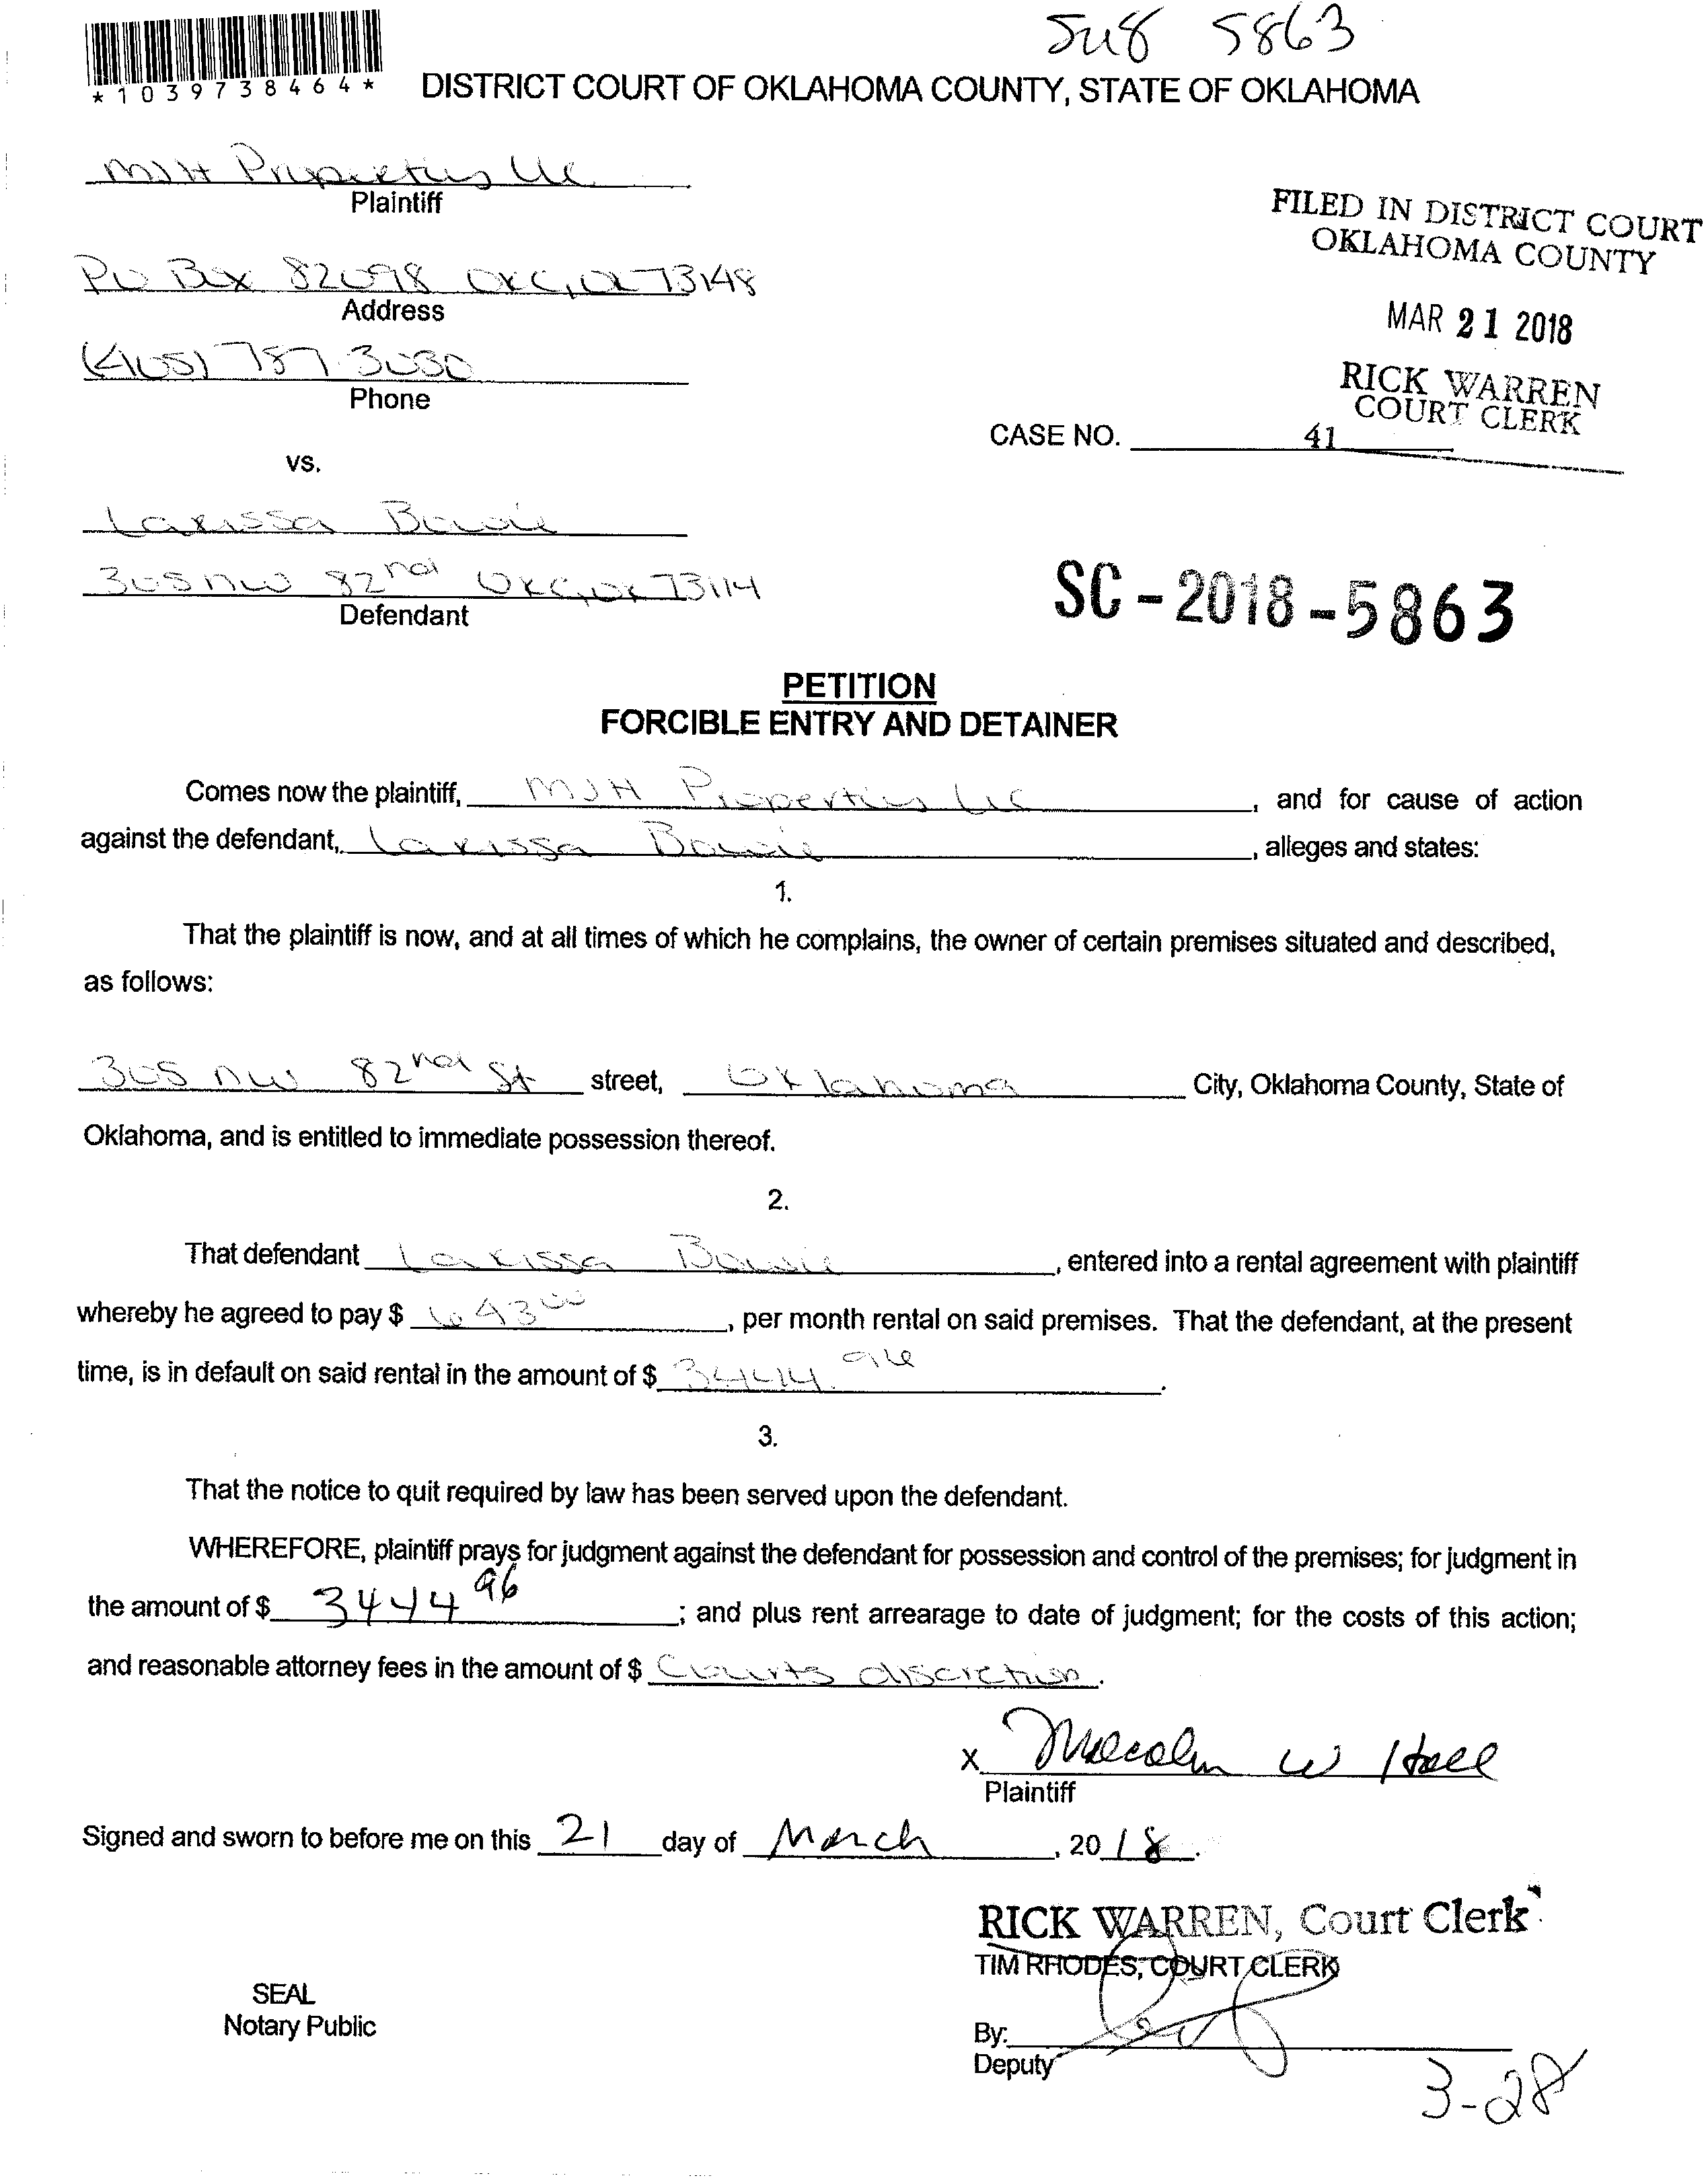 5u8 5863
*1039738464*
DISTRICT COURT OF OKLAHOMA COUNTY, STATE OF OKLAHOMA
MJH Properties LLC
Plaintiff
FILED IN DISTRICT COURT
OKLAHOMA COUNTY
PO Box 82098 OKC, OK 73148
Address
MAR 21 2018
(405) 787-3030
Phone
RICK WARREN
COURT CLERK
CASE NO. 41
vs.
Larissa Bowie
305 NW 82nd OKC, OK 73114
Defendant
SC-2018-5863
PETITION
FORCIBLE ENTRY AND DETAINER
Comes now the plaintiff, MJH Properties LLC, and for cause of action
against the defendant, Larissa Bowie, alleges and states:
1.
That the plaintiff is now, and at all times of which he complains, the owner of certain premises situated and described,
as follows:
305 NW 82nd St street, Oklahoma City, Oklahoma County, State of
Oklahoma, and is entitled to immediate possession thereof.
2.
That defendant Larissa Bowie, entered into a rental agreement with plaintiff
whereby he agreed to pay $ 693 00, per month rental on said premises. That the defendant, at the present
time, is in default on said rental in the amount of $ 3444.96.
3.
That the notice to quit required by law has been served upon the defendant.
WHEREFORE, plaintiff prays for judgment against the defendant for possession and control of the premises; for judgment in
the amount of $ 3444 96; and plus rent arrearage to date of judgment; for the costs of this action;
and reasonable attorney fees in the amount of $ Courts discretion.
x Malcolm W Hall
Plaintiff
Signed and sworn to before me on this 21 day of March, 2018.
RICK WARREN, Court Clerk
TIM RHODES, COURT CLERK
SEAL
Notary Public
By:
Deputy
3-28